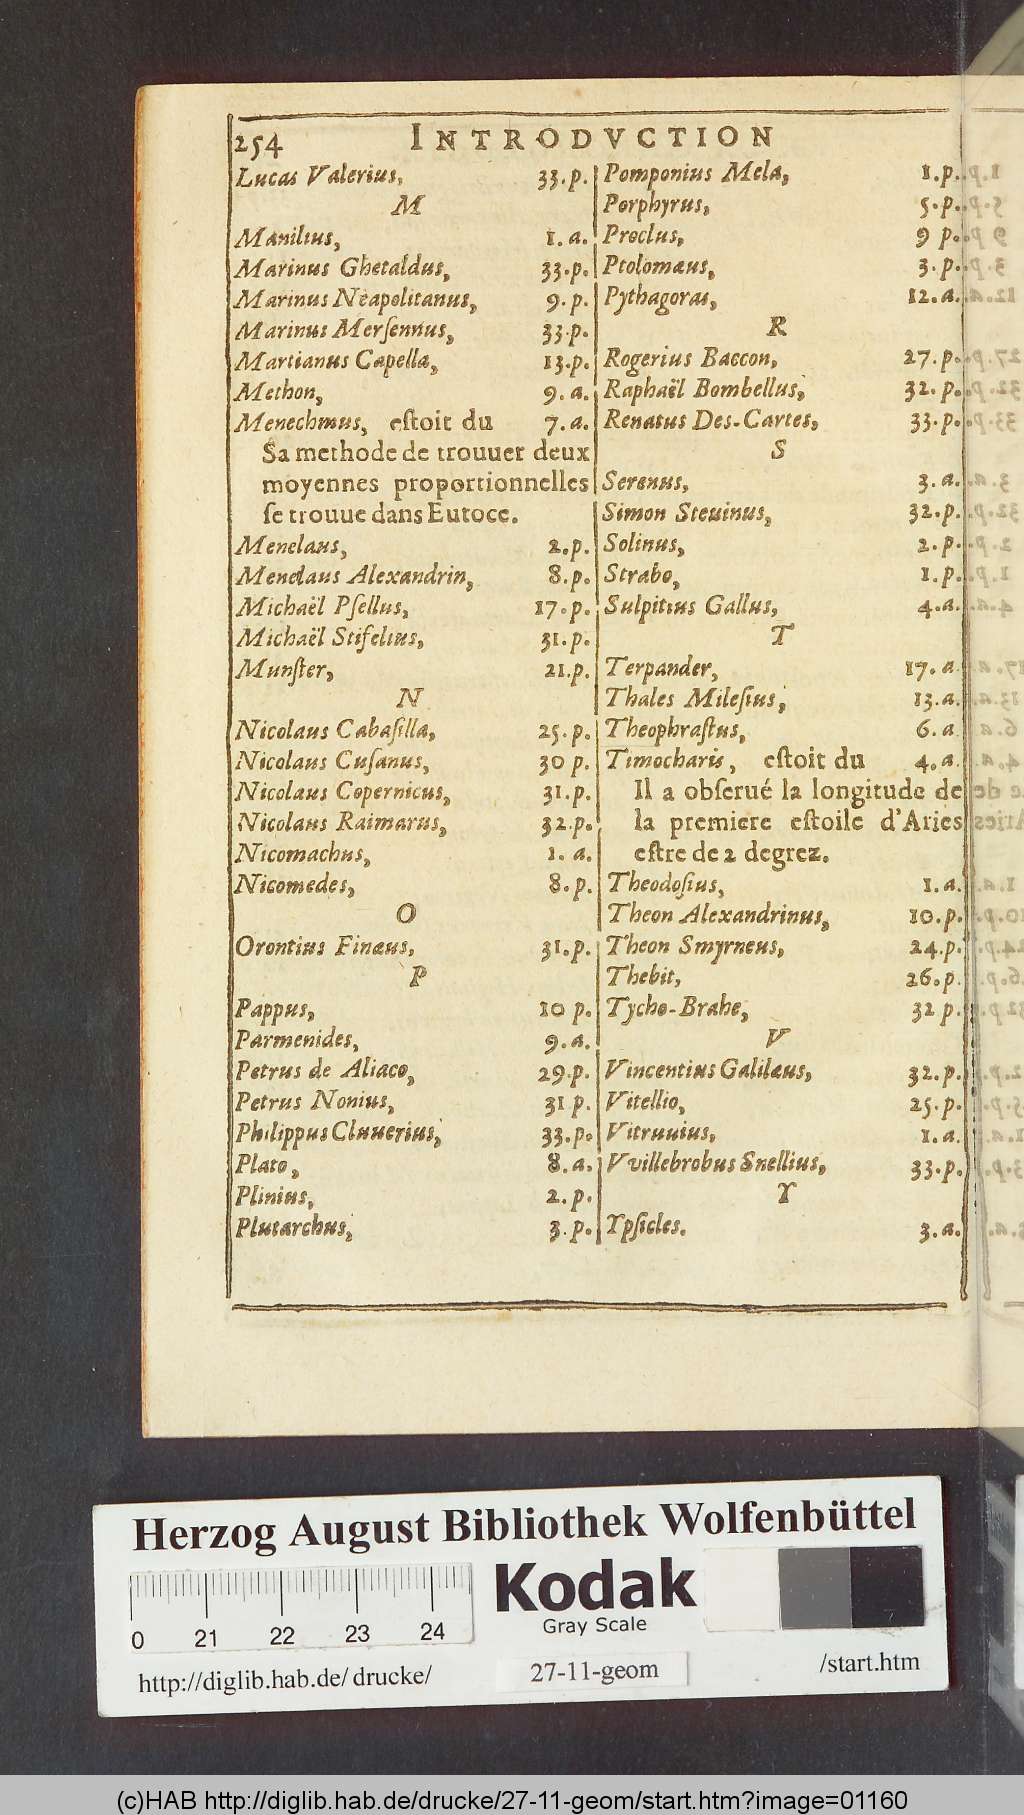 254 INTRODVCTION
Lucas Valerius, 33.p.
M
Manilius, 1.a.
Marinus Ghetaldus, 33.p.
Marinus Neapolitanus, 9.p.
Marinus Merſennus, 33.p.
Martianus Capella, 13.p.
Methon, 9.a.
Menechmus, eſtoit du 7.a.
Sa methode de trouuer deux
moyennes proportionnelles
ſe trouue dans Eutoce.
Menelaus, 2.p.
Menelaus Alexandrin, 8.p.
Michaël Pſellus, 17.p.
Michaël Stifelius, 31.p.
Munſter, 21.p.
N
Nicolaus Cabaſilla, 25.p.
Nicolaus Cuſanus, 30 p.
Nicolaus Copernicus, 31.p.
Nicolaus Raimarus, 32.p.
Nicomachus, 1.a.
Nicomedes, 8.p.
O
Orontius Finæus, 31.p.
P
Pappus, 10 p.
Parmenides, 9.a.
Petrus de Aliaco, 29.p.
Petrus Nonius, 31 p.
Philippus Cluuerius, 33.p.
Plato, 8.a.
Plinius, 2.p.
Plutarchus, 3.p.
Pomponius Mela, 1.p.
Porphyrus, 5.p.
Proclus, 9 p.
Ptolomæus, 3.p.
Pythagoras, 12.a.
R
Rogerius Baccon, 27.p.
Raphaël Bombellus, 32.p.
Renatus Des-Cartes, 33.p.
S
Serenus, 3.a.
Simon Steuinus, 32.p.
Solinus, 2.p.
Strabo, 1.p.
Sulpitius Gallus, 4.a.
T
Terpander, 17.a
Thales Mileſius, 13.a.
Theophraſtus, 6.a
Timocharis, eſtoit du 4.a.
Il a obſerué la longitude de
la premiere eſtoile d'Aries
eſtre de 2 degrez.
Theodoſius, 1.a.
Theon Alexandrinus, 10.p.
Theon Smyrneus, 24.p.
Thebit, 26.p.
Tycho-Brahe, 32 p.
V
Vincentius Galilæus, 32.p.
Vitellio, 25.p.
Vitruuius, 1.a.
Vvillebrobus Snellius, 33.p.
Y
Ypſicles. 3.a.
Herzog August Bibliothek Wolfenbüttel
0 21 22 23 24
Kodak
Gray Scale
http://diglib.hab.de/drucke/ 27-11-geom /start.htm
(c)HAB http://diglib.hab.de/drucke/27-11-geom/start.htm?image=01160